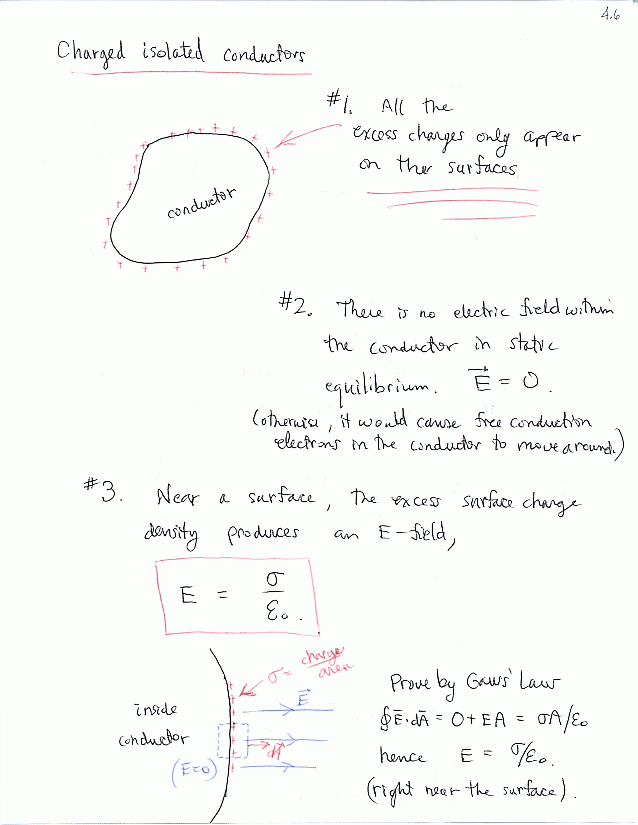 4.6
Charged isolated conductors
#1. All the
excess charges only appear
on their surfaces
conductor
#2. There is no electric field within
the conductor in static
equilibrium. E⃗ = 0.
(otherwise, it would cause free conduction
electrons in the conductor to move around.)
#3. Near a surface, the excess surface charge
density produces an E-field,
E = σ/ε₀.
σ = charge/area
E⃗
inside
conductor
(E=0)
dA⃗
Prove by Gauss' Law
∮E⃗·dA⃗ = 0 + EA = σA/ε₀
hence E = σ/ε₀.
(right near the surface).